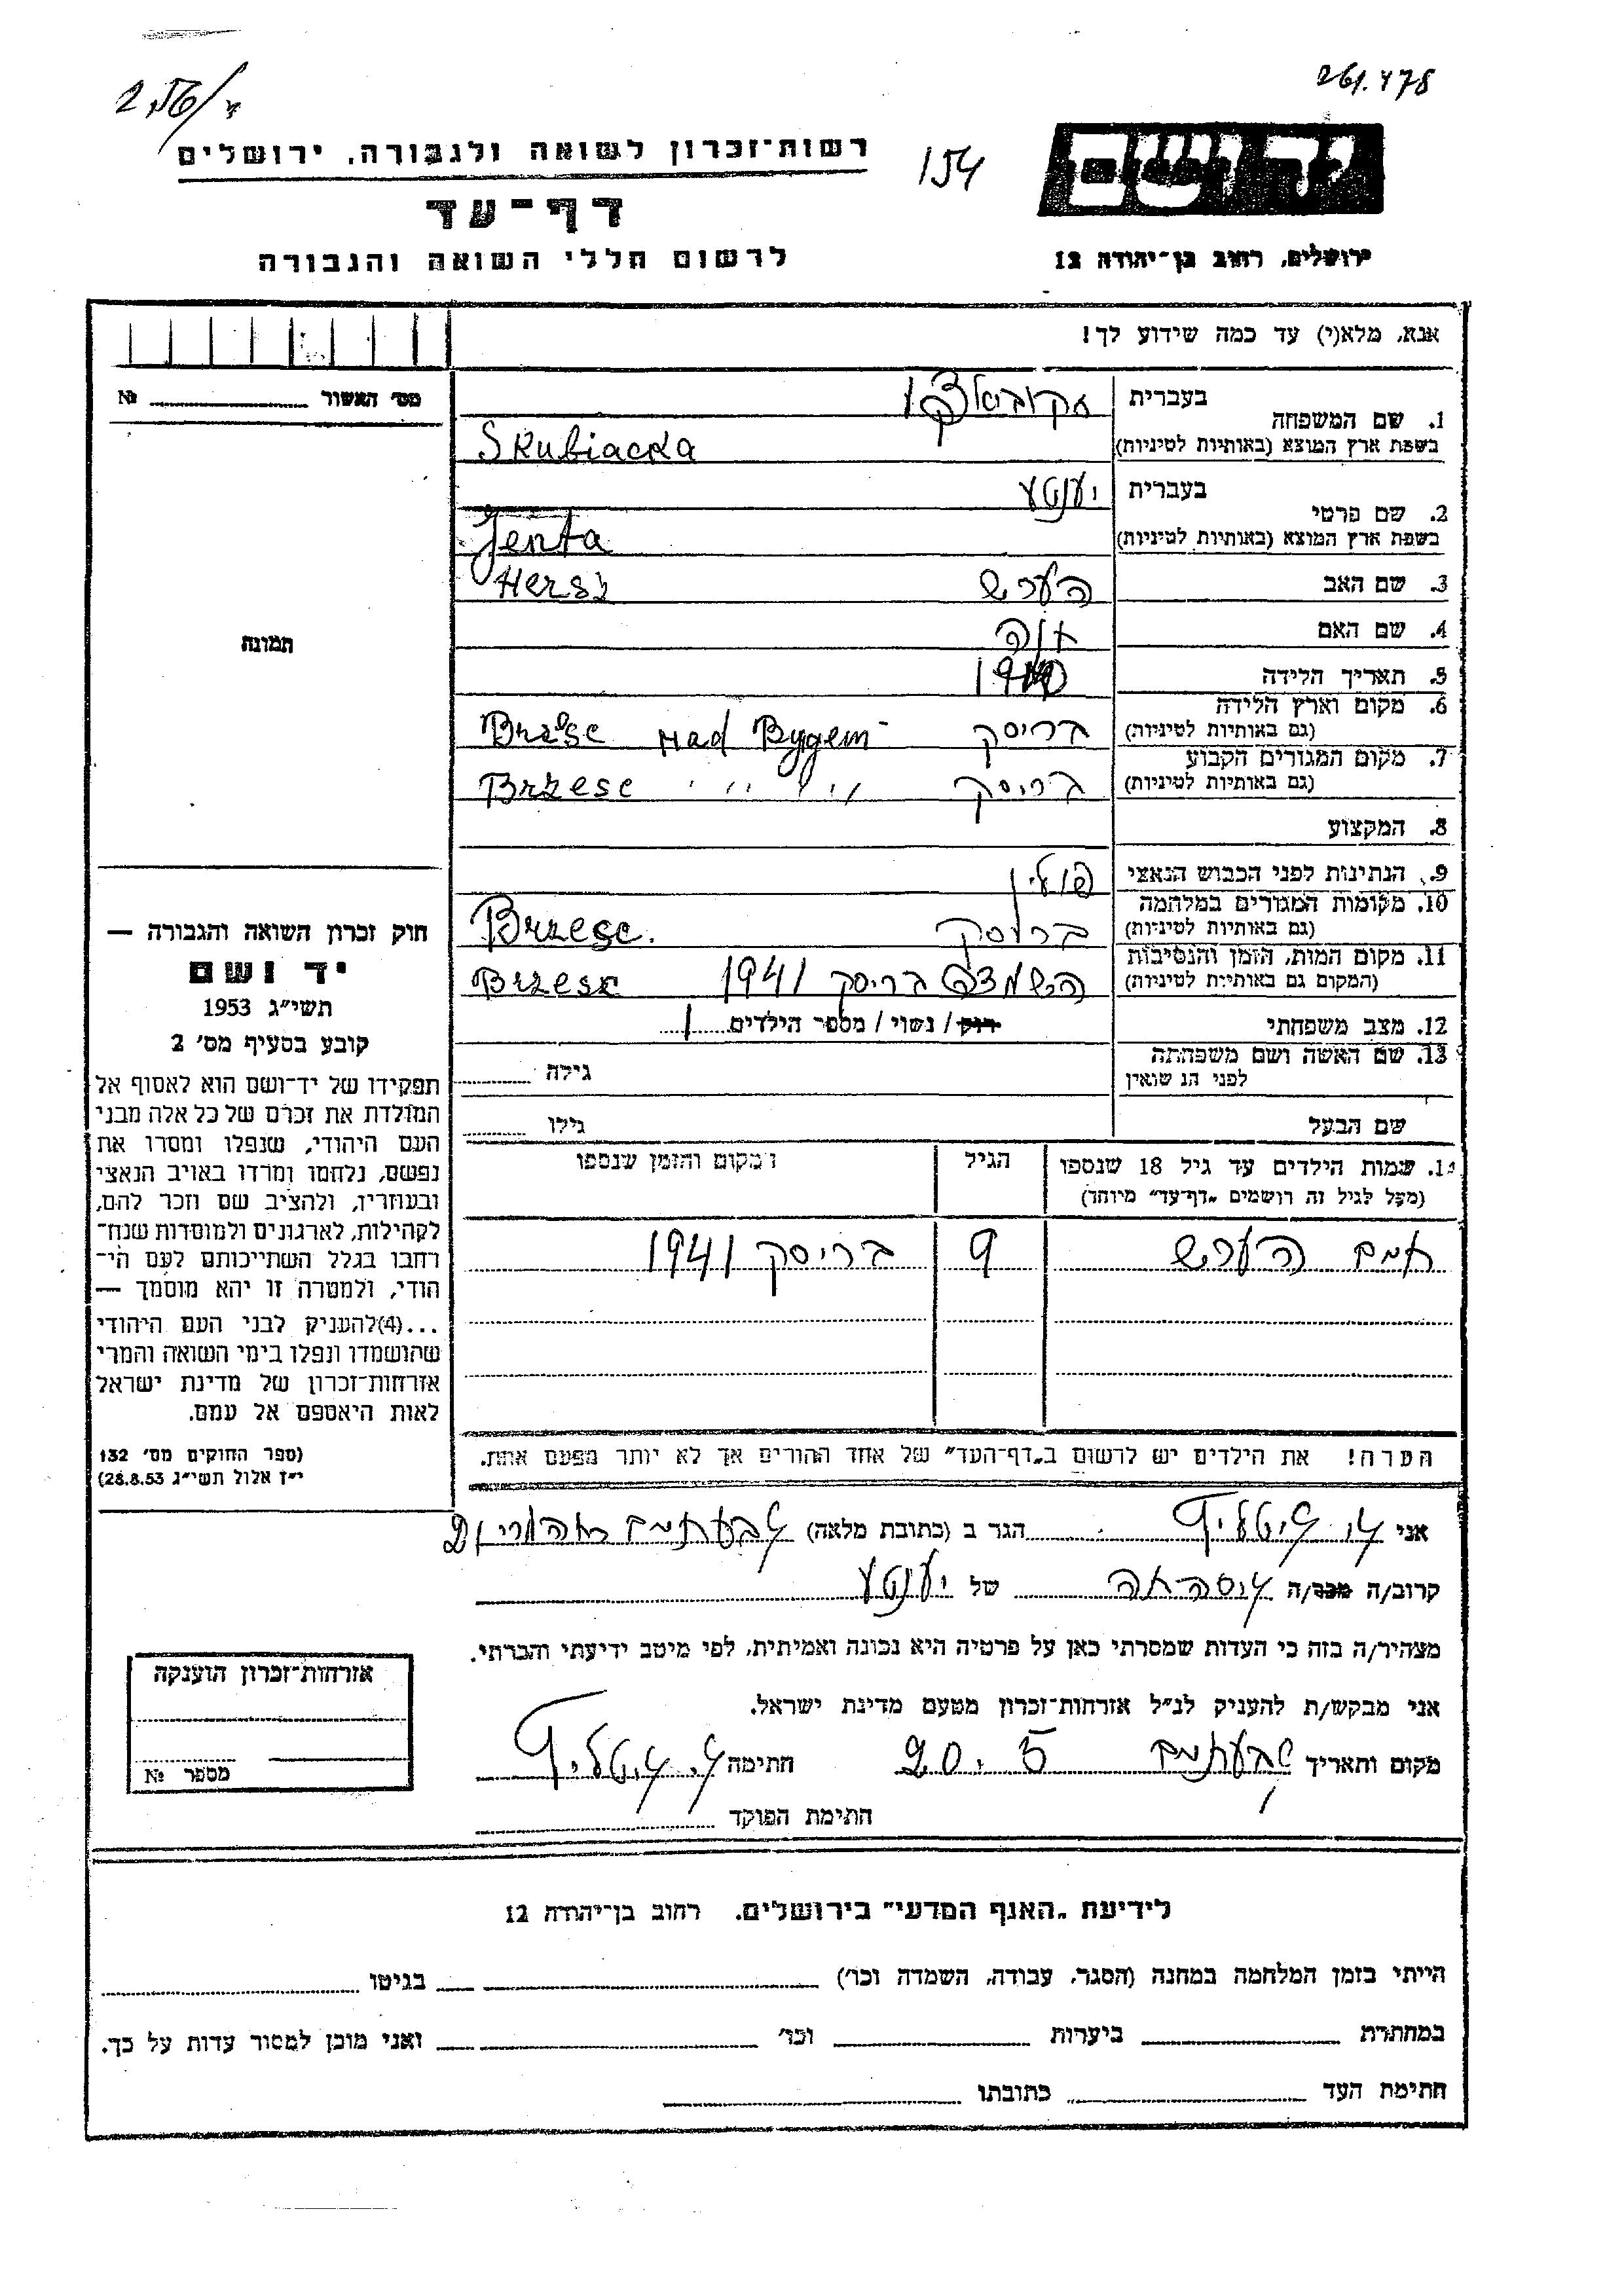 261.478
154
יד ושם
רשות־זכרון לשואה ולגבורה, ירושלים
דף־עד
ירושלים, רחוב בן־יהודה 12
לרשום חללי השואה והגבורה
אנא, מלא(י) עד כמה שידוע לך!
מס׳ האשור № 
1. שם המשפחה
בעברית
בשפת ארץ המוצא (באותיות לטיניות) Skubiacka
2. שם פרטי
בעברית יענטע
בשפת ארץ המוצא (באותיות לטיניות) Jenta
3. שם האב הערש Hersz
4. שם האם
5. תאריך הלידה
6. מקום וארץ הלידה בריסק Brześc nad Bygem
(גם באותיות לטיניות)
7. מקום המגורים הקבוע בריסק Brzesc " " "
(גם באותיות לטיניות)
8. המקצוע
9. הנתינות לפני הכבוש הנאצי פולין
10. מקומות המגורים במלחמה בריסק Brzesc.
(גם באותיות לטיניות)
11. מקום המות, הזמן והנסיבות בריסק 1941 Brzesc
(המקום גם באותיות לטיניות)
12. מצב משפחתי רוק / נשוי / מספר הילדים 1
13. שם האשה ושם משפחתה
לפני הנשואין
גילה
שם הבעל
גילו
תמונה
חוק זכרון השואה והגבורה —
יד ושם
תשי״ג 1953
קובע בסעיף מס׳ 2
תפקידו של יד־ושם הוא לאסוף אל
המולדת את זכרם של כל אלה מבני
העם היהודי, שנפלו ומסרו את
נפשם, נלחמו ומרדו באויב הנאצי
ובעוזריו, ולהציב שם וזכר להם,
לקהילות, לארגונים ולמוסדות שנח־
רבו בגלל השתייכותם לעם הי־
הודי, ולמטרה זו יהא מוסמך —
...(4) להעניק לבני העם היהודי
שהושמדו ונפלו בימי השואה והמרי
אזרחות־זכרון של מדינת ישראל
לאות היאספם אל עמם.
(ספר החוקים מס׳ 132
י״ז אלול תשי״ג 28.8.53)
14. שמות הילדים עד גיל 18 שנספו
(מעל לגיל זה רושמים „דף־עד״ מיוחד)
הגיל
המקום והזמן שנספו
הערש 9 בריסק 1941
הערה! את הילדים יש לרשום ב„דף־העד״ של אחד ההורים אך לא יותר מפעם אחת.
אני הגר ב (כתובת מלאה) גבעתיים
קרוב/ה מכר/ה של יענטע
מצהיר/ה בזה כי העדות שמסרתי כאן על פרטיה היא נכונה ואמיתית, לפי מיטב ידיעתי והכרתי.
אני מבקש/ת להעניק לנ״ל אזרחות־זכרון מטעם מדינת ישראל.
מקום ותאריך גבעתיים 20.5 חתימה
חתימת הפוקד
אזרחות־זכרון הוענקה
מספר №
לידיעת „האגף המדעי״ בירושלים, רחוב בן־יהודה 12
הייתי בזמן המלחמה במחנה (הסגר, עבודה, השמדה וכו׳) בגיטו
במחתרת ביערות וכו׳ ואני מוכן למסור עדות על כך.
חתימת העד כתובתו